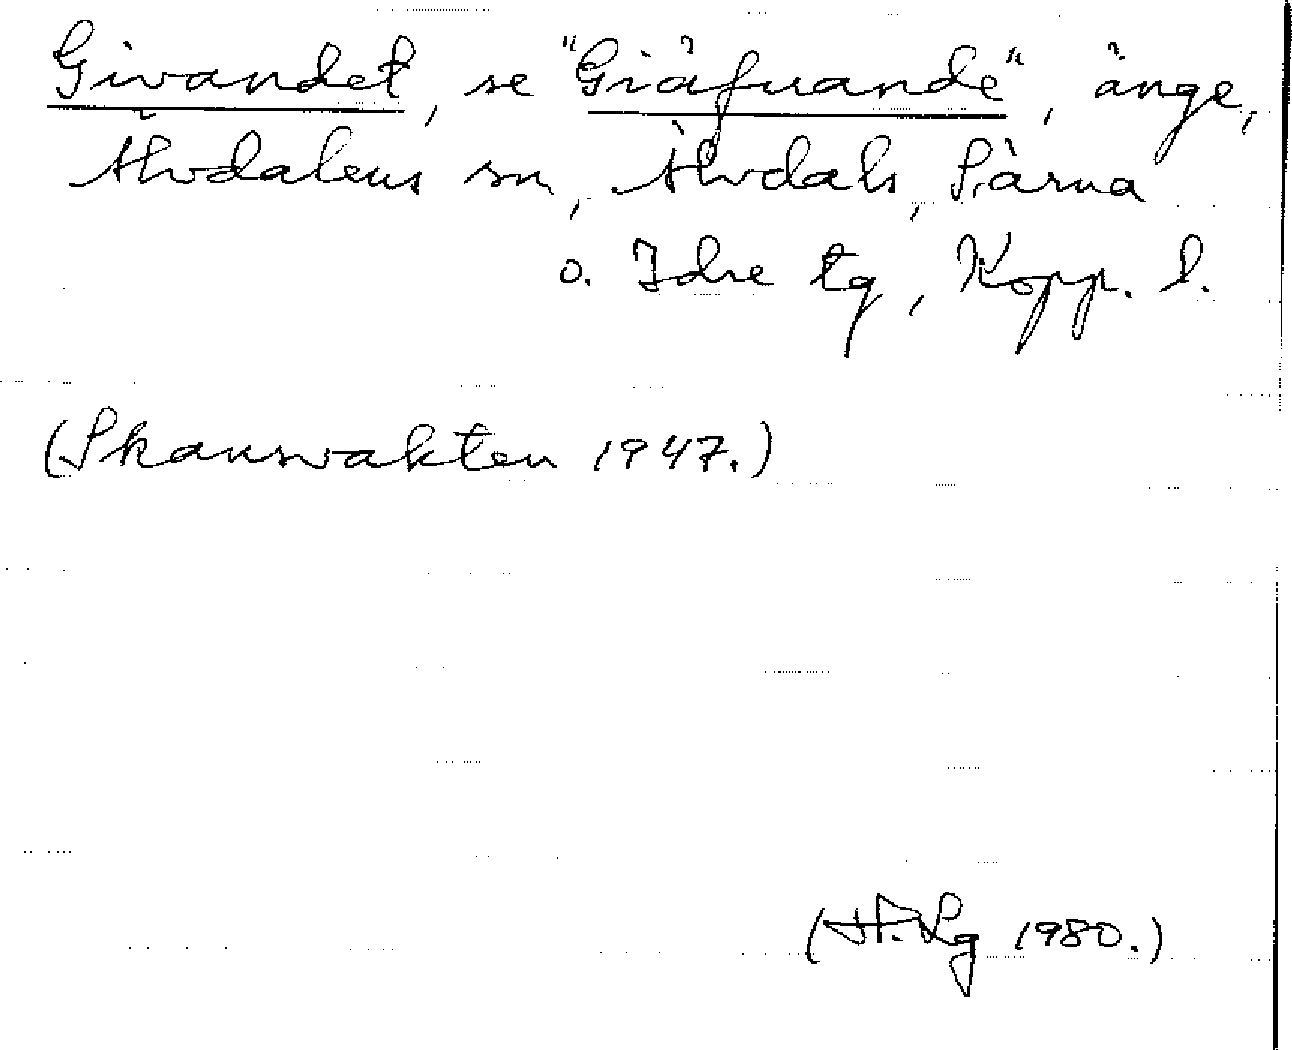 Givandet, se "Giäfuande", änge,
Älvdalens sn, Älvdals, Särna
o. Idre tg, Kopp. l.
(Skansvakten 1947.)
(H. Lg 1980.)